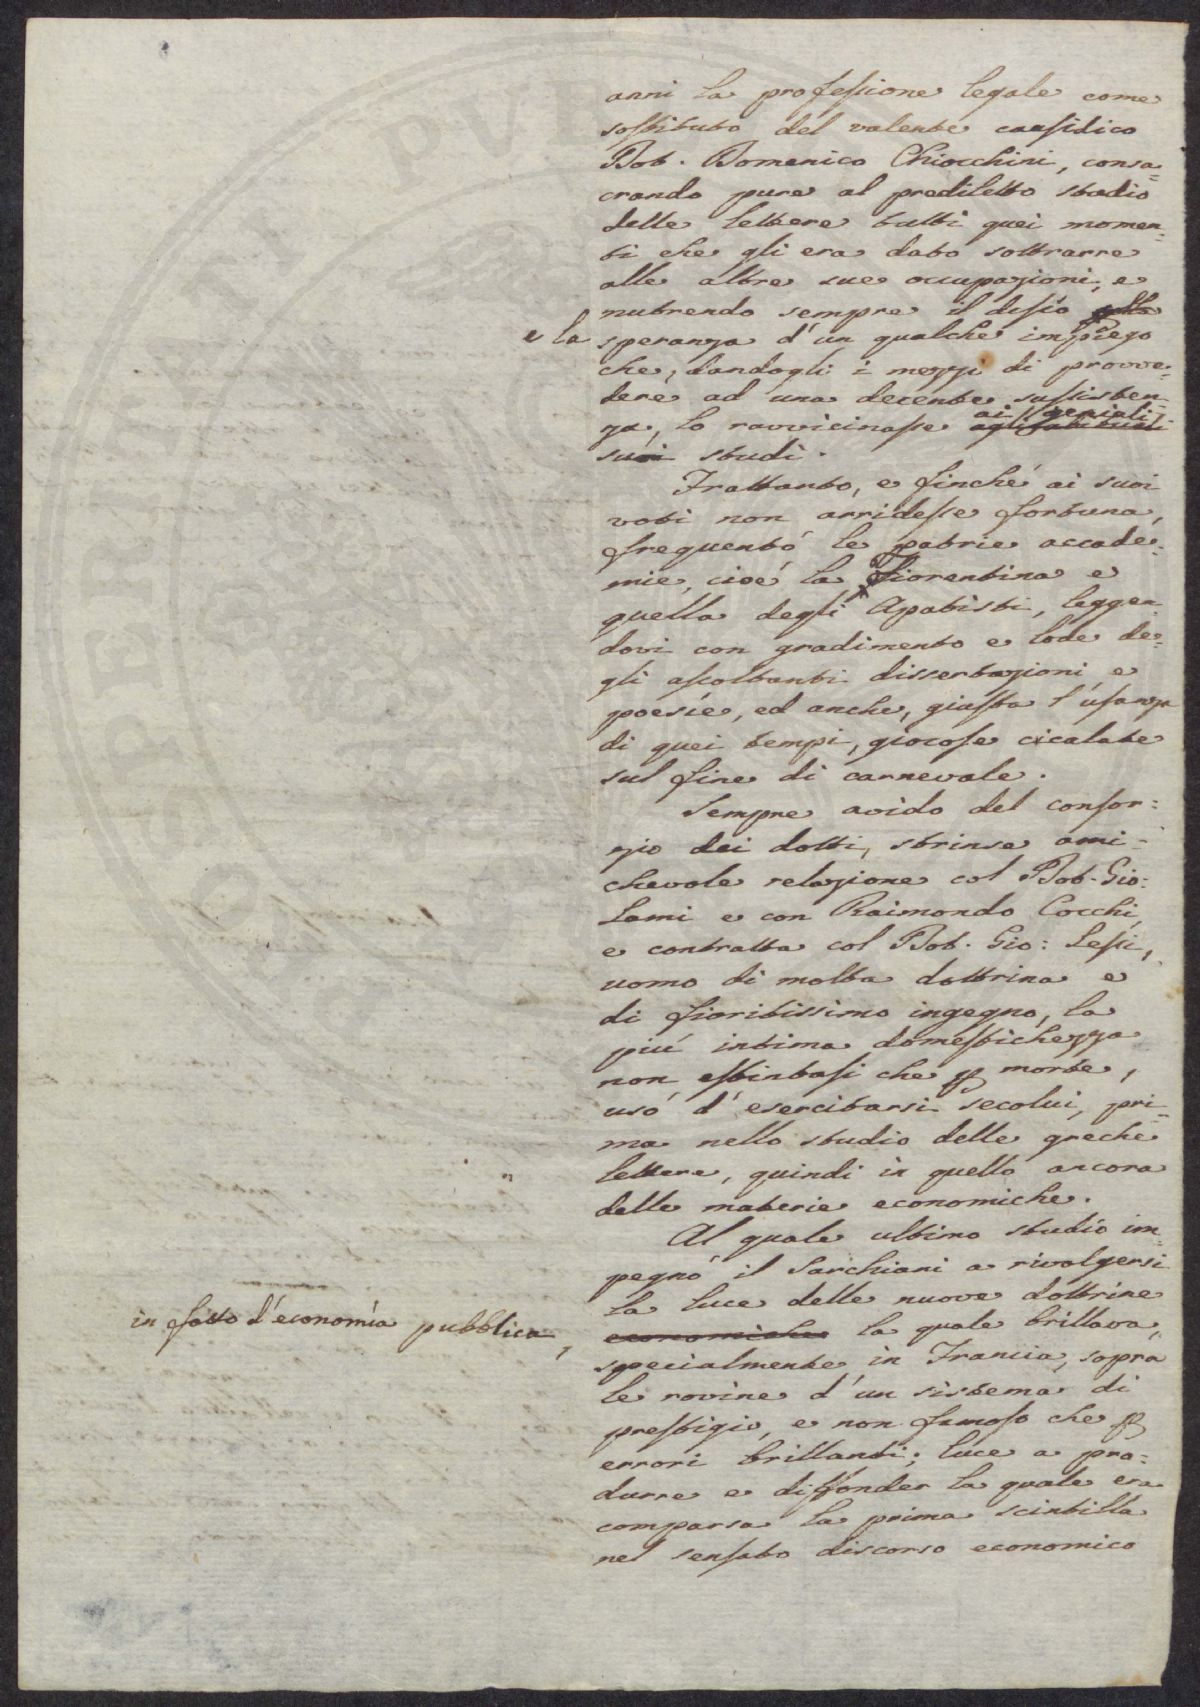 anni la professione legale come
sostituto del valente causidico
Dot. Domenico Chiocchini, consa=
crando pure al prediletto studio
delle lettere tutti quei momen=
ti che gli era dato sottrarre
alle altre sue occupazioni, e
nutrendo sempre il desio
e la speranza d'un qualche impiego
che, dandogli i mezzi di provve=
dere ad una decente sussisten=
ai geniali
za, lo ravvicinasse agli abituali
suoi studi.
Frattanto, e finché ai suoi
voti non arridesse fortuna,
frequentò le patrie accade=
mie, cioè la Fiorentina e
quella degli Apatisti, leggen=
dovi con gradimento e lode de=
gli ascoltanti dissertazioni e
poesie, ed anche, giusta l'usanza
di quei tempi, giocose cicalate
sul fine di carnevale.
Sempre avido del consor=
zio dei dotti, strinse ami=
chevole relazione col Dot. Gio:
Lami e con Raimondo Cocchi,
e contratta col Dot. Gio: Lessi,
uomo di molta dottrina e
di fioritissimo ingegno, la
più intima domestichezza
non estintasi che p morte,
usò d'esercitarsi secolui, pri=
ma nello studio delle greche
lettere, quindi in quello ancora
delle materie economiche.
Al quale ultimo studio im=
pegnò il Sarchiani a rivolgersi
la luce delle nuove dottrine
in fatto d'economia pubblica,
economiche la quale brillava,
specialmente in Francia, sopra
le rovine d'un sistema di
prestigio, e non famoso che p
errori brillanti; luce a pro=
durre e diffonder la quale era
comparsa la prima scintilla
nel sensato discorso economico